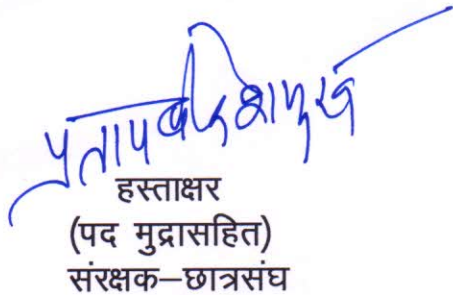 हस्ताक्षर
(पद मुद्रासहित)
संरक्षक–छात्रसंघ